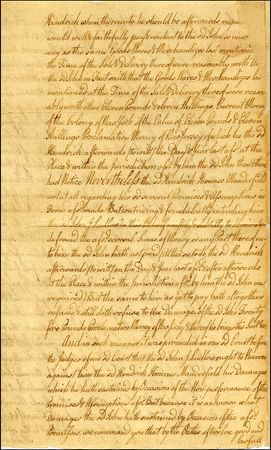 Hendrick when thereunto he should be afterwards requir
would well & faithfully pay & content to the sd John so mu
ney as the same Goods Wares & Merchandizes last mentione
the Time of the Sale & Delivery thereof were reasonably worth
the sd John in fact saith that the Goods Wares & Merchandizes las
mentioned at the Time of the Sale & Delivery thereof were reaso
ably worth other Eleven Pounds Eleven Shillings Current Money
of the Colony of New York of the Value of Eleven Pounds & Eleven
Shillings Proclamation Money of New Jersey of which he the sd
Hendrick afterwards to witt the Day & year last afsd at the
Place & within the Jurisdiction afsd by him the sd John then there
had Notice Nevertheless the sd Hendrick
what all regarding his several Promises & Assumptions in
form afsd made But contriving & fraudulently intending him
the sd John
defraud the afsd several Sums of Money or any Part thereof un
to him the sd John hath not paid tho' so to do the sd Hendrick
afterwards to witt on the Day & Year last afsd & often afterwards
at the Place & within the Jurisdiction afsd by him the sd John was
required But the same to him as yet to pay hath altogether
refused & still doth refuse to the Damage of the sd John Twenty
five Pounds Proclamation Money of New Jersey & thereof he brings this Suit &c
And in such manner it was proceeded in our sd Court before
the Judges of our sd Court that the sd John Ludlow ought to Recover
against them the sd Hendrick his Damages
which he hath sustained by Occasion of the Non-performance of the
Promises & Assumptions afsd But because it is unknown what
Damages the sd John hath sustained by Occasion of the afsd
Premisses, we command you that by the Oaths of twelve good and
lawfull